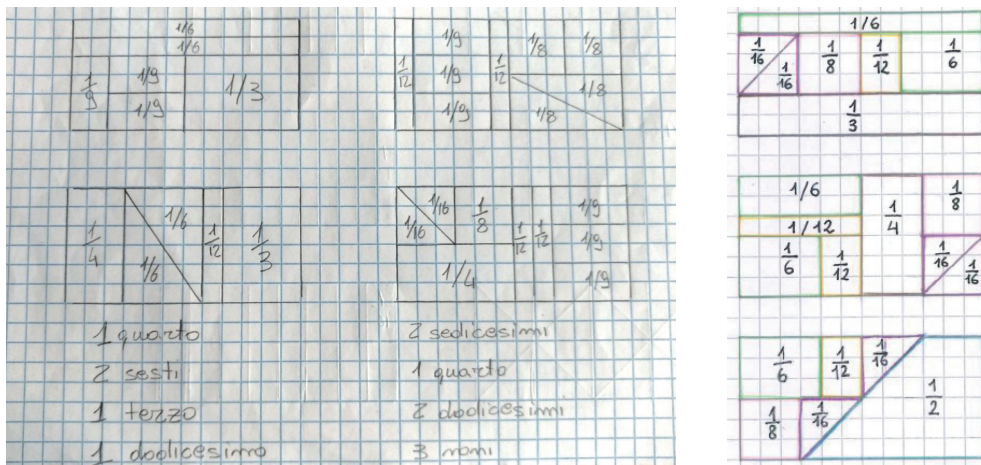 1/6
1/6
1/9
1/9
1/9
1/3
1/12
1/9
1/9
1/9
1/12
1/8
1/8
1/8
1/8
1/4
1/6
1/6
1/12
1/3
1/16
1/16
1/8
1/4
1/12
1/12
1/9
1/9
1/9
1 quarto
2 sesti
1 terzo
1 dodicesimo
2 sedicesimi
1 quarto
2 dodicesimi
3 noni
1/6
1/16
1/16
1/8
1/12
1/6
1/3
1/6
1/12
1/6
1/12
1/4
1/8
1/16
1/16
1/6
1/12
1/16
1/8
1/16
1/2